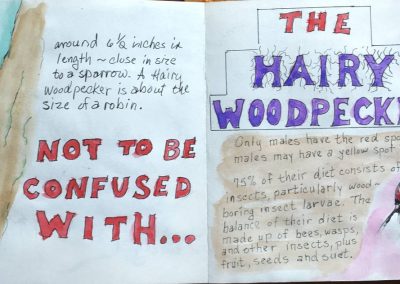 around 6½ inches in
length ~ close in size
to a sparrow. A Hairy
Woodpecker is about the
size of a robin.
NOT TO BE
CONFUSED
WITH...
THE
HAIRY
WOODPECKE
Only males have the red spo
males may have a yellow spot
75% of their diet consists of
insects, particularly wood-
boring insect larvae. The
balance of their diet is
made up of bees, wasps,
and other insects, plus
fruit, seeds and suet.